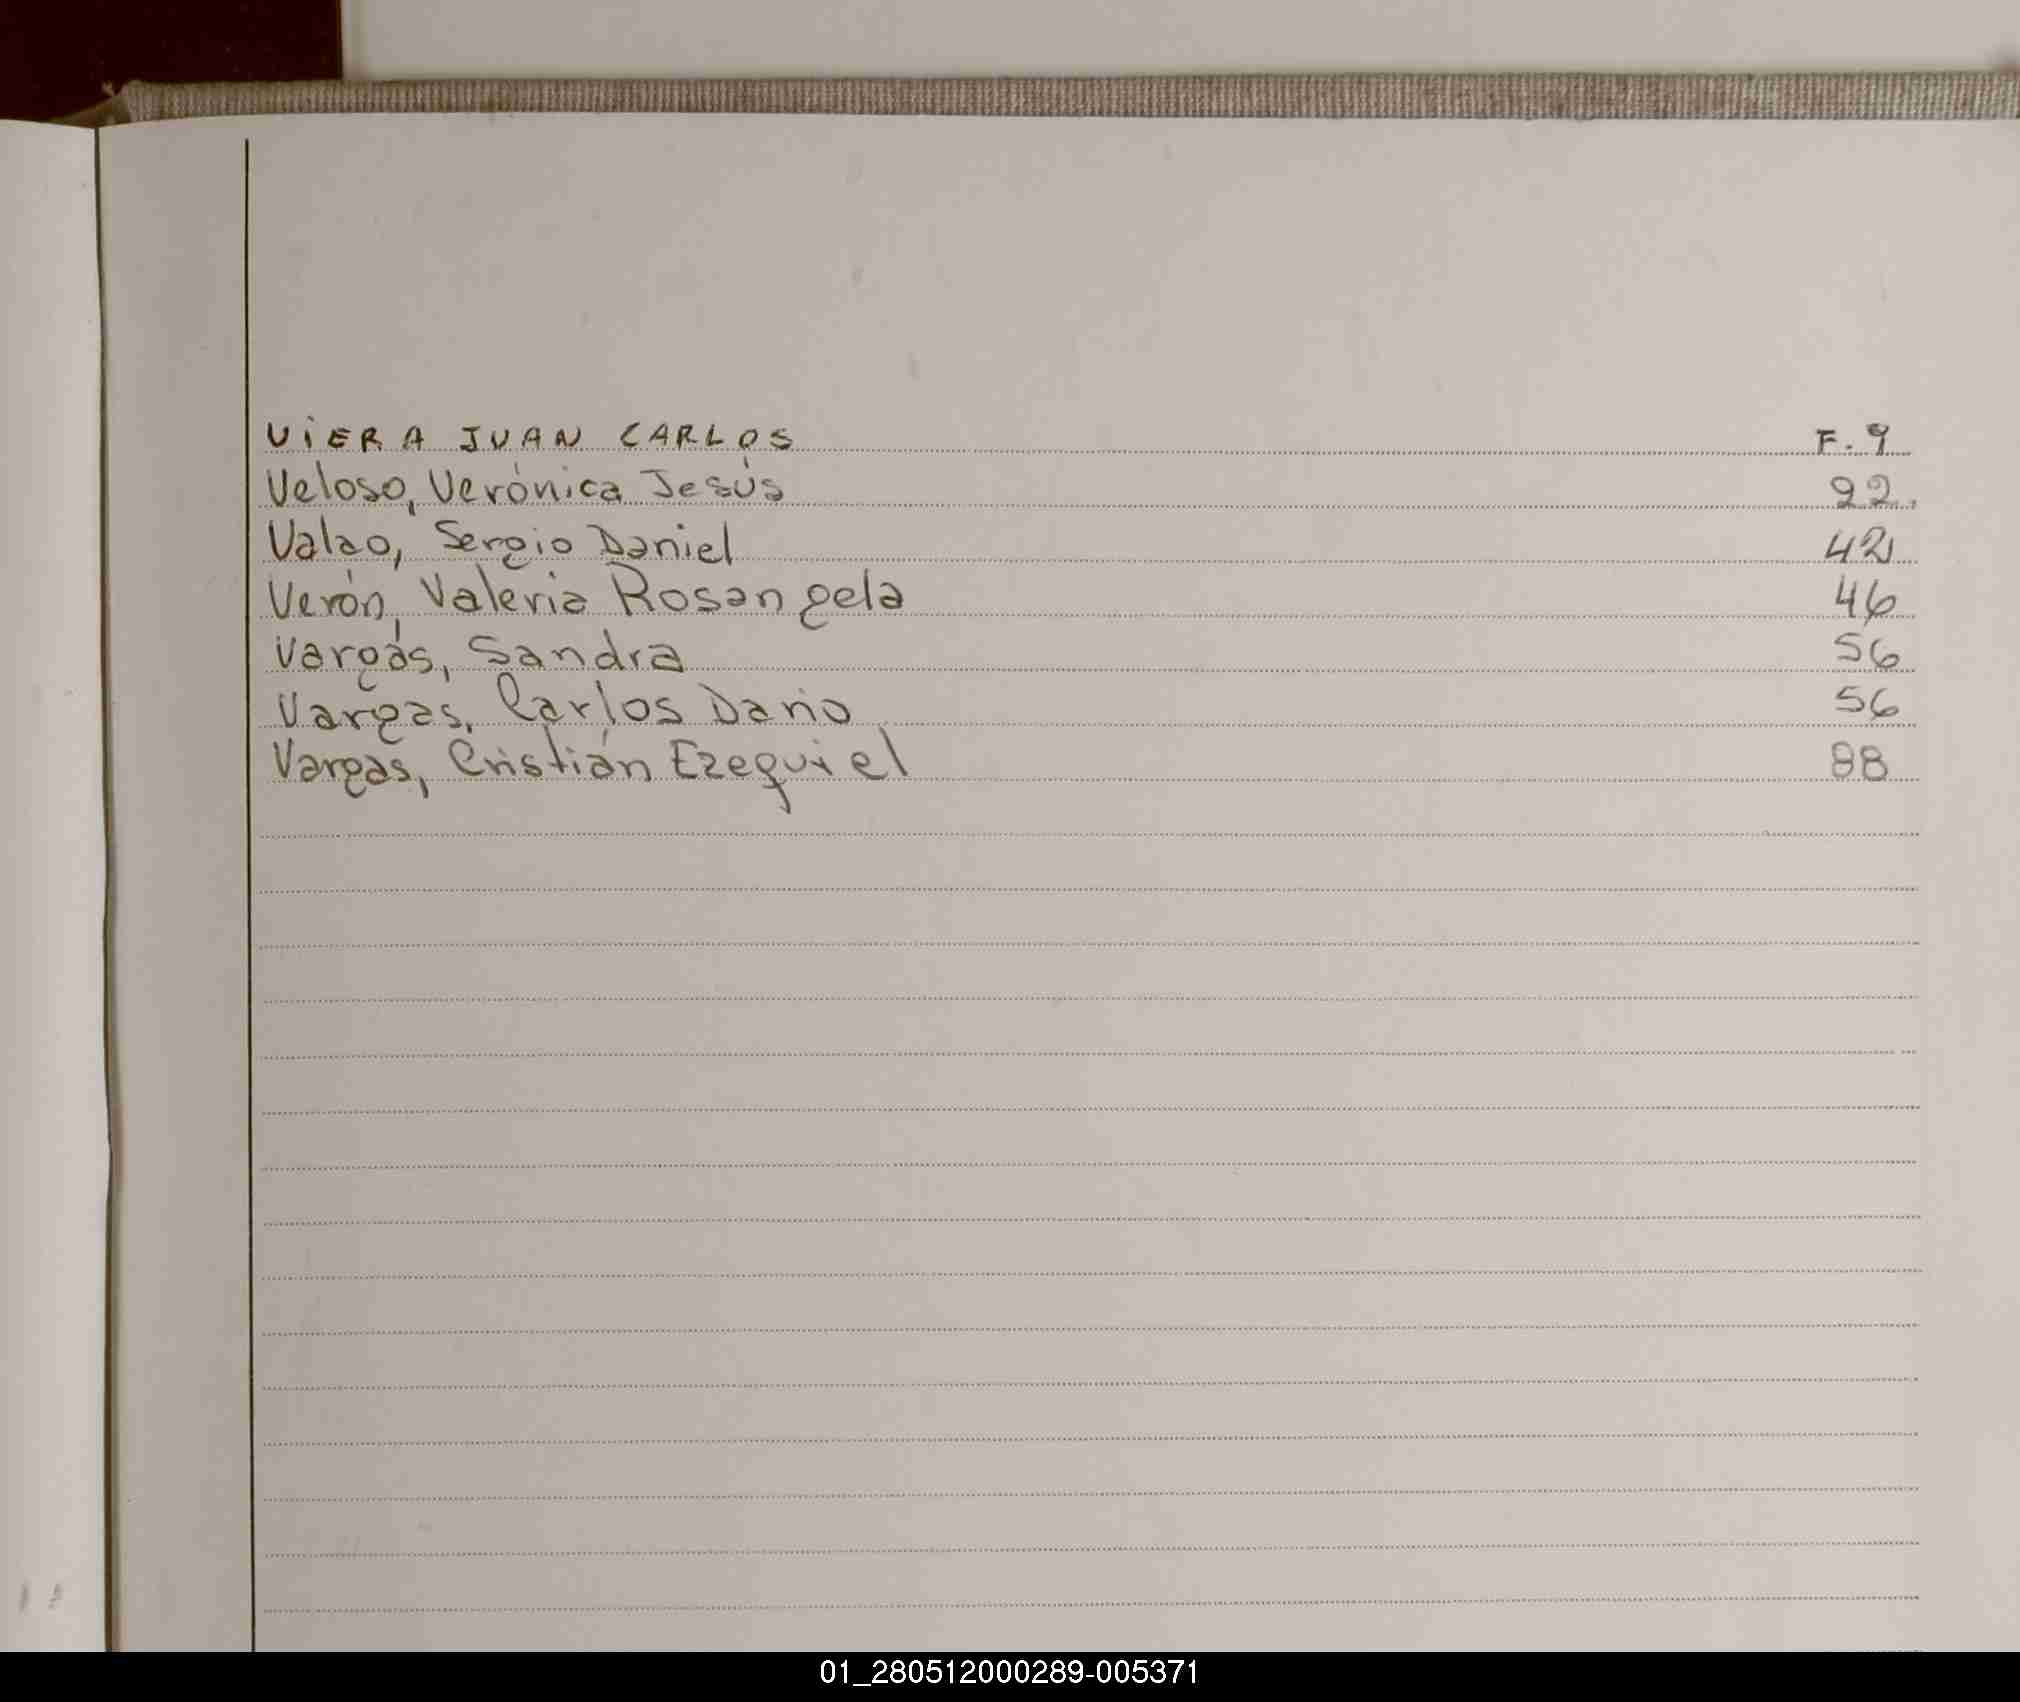 VIERA JUAN CARLOS F. 9
Veloso, Verónica Jesús 22.
Valao, Sergio Daniel 42
Verón, Valeria Rosangela 46
Vargas, Sandra 56
Vargas, Carlos Darío 56
Vargas, Cristián Ezequiel 88
01_280512000289-005371